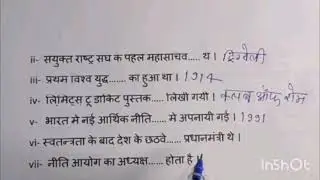 ii- सयुक्त राष्ट्र सघ क पहल महासचिव..... थ । ट्रिग्वेली
iii- प्रथम विश्व युद्ध....... का हुआ था । 1914
iv- लिमिट्स टू डाकिट पुस्तक..... लिखी गयी । क्लब ऑफ रोम
v- भारत मे नई आर्थिक नीति...... मे अपनायी गई । 1991
vi- स्वतन्त्रता के बाद देश के छठवे..... प्रधानमंत्री थे ।
vii- नीति आयोग का अध्यक्ष...... होता है ।
InShOt